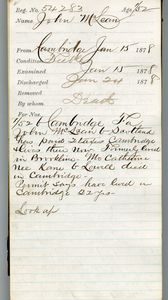 Reg. No. 54283 Age 82
Name John McLean
From Cambridge Jan 15 1878
Condition
Examined Jan 15 1878
Discharged Jan 24 1878
Removed
By whom Dead
For Nos.
752 to Cambridge
John McLean to Scotland
has paid taxes Cambridge
& lives there now. Formerly lived
in Brookline. Mo Catherine
nee Kane to Lowell died
in Cambridge.
Permit says have lived in
Cambridge 32 yrs.
Look up